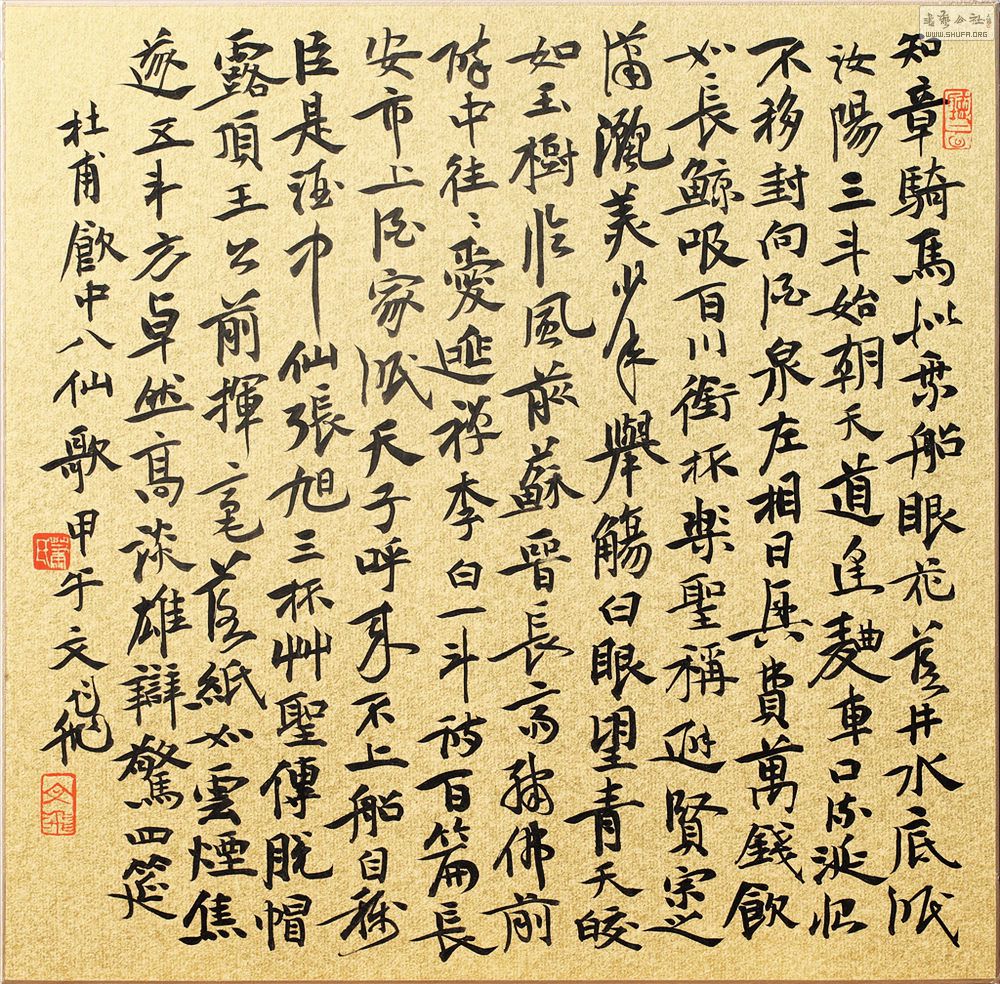 知章騎馬似乘船眼花落井水底眠
汝陽三斗始朝天道逢麯車口流涎恨
不移封向酒泉左相日興費萬錢飲
如長鯨吸百川銜杯樂聖稱避賢宗之
瀟灑美少年舉觴白眼望青天皎
如玉樹臨風前蘇晉長齋繡佛前
醉中往〻愛逃禪李白一斗詩百篇長
安市上酒家眠天子呼來不上船自稱
臣是酒中仙張旭三杯艸聖傳脫帽
露頂王公前揮毫落紙如雲煙焦
遂五斗方卓然高談雄辯驚四筵
杜甫飲中八仙歌甲午文飛
文飛
書藝公社
WWW.SHUFA.ORG